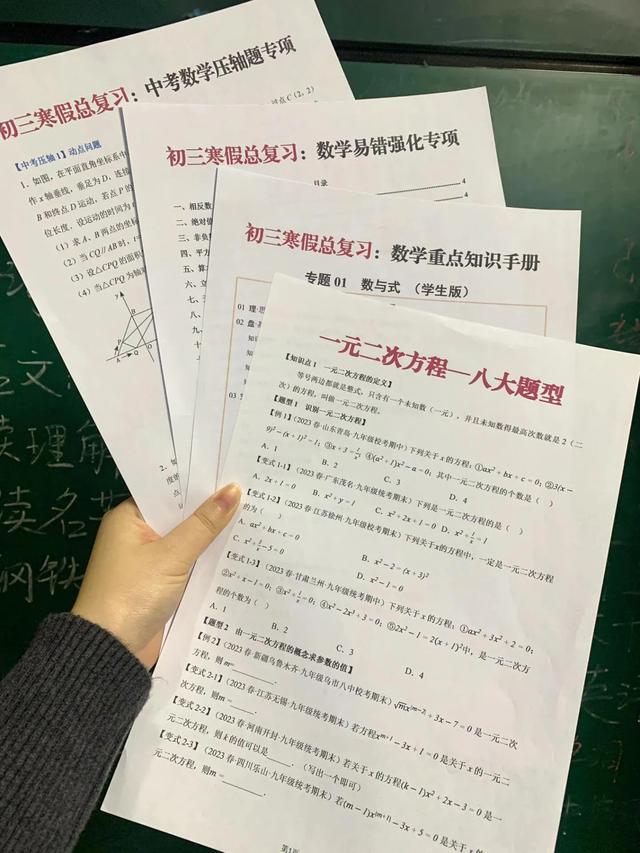 初三寒假总复习：中考数学压轴题专项
过点C(2, 2)
【中考压轴1】动点问题
1. 如图，在平面直角坐标系中
作x轴垂线，垂足为D，连接
B和终点D运动，若点P的
位长度，设运动的时间为
(1) 求A、B两点的坐标
(2) 当CQ // AB时，
(3) 设△CPQ的面积
(4) 当△CPQ为轴
初三寒假总复习：数学易错强化专项
目录
4
一、相反数
4
二、绝对值
三、非负
四、平方
五、算
六、立
七、
八、
九、
十、
初三寒假总复习：数学重点知识手册
专题 01 数与式 （学生版）
01 理·思
02 盘·基
知
知
知
知
03
一元二次方程—八大题型
【知识点1 一元二次方程的定义】
等号两边都是整式，只含有一个未知数（一元），并且未知数得最高次数就是2（二
次）的方程，叫做一元二次方程。
【题型1 识别一元二次方程】
【例1】（2023春·山东青岛·九年级校考期中）下列关于x的方程：①ax²+bx+c=0；②3(x−
9)²−(x+1)²=1；③x+3=1/x；④(a²+1)x²−a=0；其中一元二次方程的个数是（ ）
A. 1 B. 2 C. 3 D. 4
【变式1-1】（2023春·广东茂名·九年级统考期末）下列是一元二次方程的是（ ）
A. 2x+1=0 B. x²+y=1 C. x²+2x+1=0 D. x²+1/x=1
【变式1-2】（2023春·江苏徐州·九年级校考期末）下列关于x的方程中，一定是一元二次方程
的为（ ）
A. ax²+bx+c=0 B. x²−2=(x+3)²
C. x²+1/x−5=0 D. x²−1=0
【变式1-3】（2023春·甘肃兰州·九年级统考期中）下列关于x的方程：①ax²+3x²+2=0；
②x²+x−1=0；③x²+1/x=0；④x²−2x³+3=0；⑤2x²−1=2(x+1)²中，是一元二次方
程的个数为（ ）
A. 1 B. 2 C. 3 D. 4
【题型2 由一元二次方程的概念求参数的值】
【例2】（2023春·新疆乌鲁木齐·九年级乌市八中校考期末）√m x^(m−2)+3x−7=0是一元二次
方程，则m=______.
【变式2-1】（2023春·江苏无锡·九年级统考期末）若方程x^(m+1)−3x+1=0是关于x的一元
二次方程，则m=______.
【变式2-2】（2023春·河南开封·九年级统考期末）若关于x的方程(k−1)x²+2x−3=0是一
元二次方程，则k的值可以是______.（写出一个即可）
【变式2-3】（2023春·四川乐山·九年级统考期末）若(m−1)x^(m²+1)−3x+5=0是关于x的一
元二次方程，则m=______.
第1页